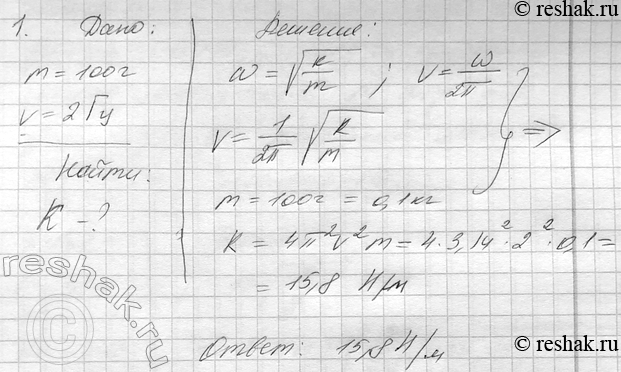 reshak.ru
1. Дано:
m = 100г
ν = 2 Гц
Найти:
K - ?
Решение:
ω = √(k/m) ; ν = ω/2π
ν = 1/2π √(k/m) } ⇒
m = 100г = 0,1 кг
K = 4π²ν²m = 4·3,14²·2²·0,1 =
= 15,8 Н/м
Ответ: 15,8 Н/м
reshak.ru
reshak.ru